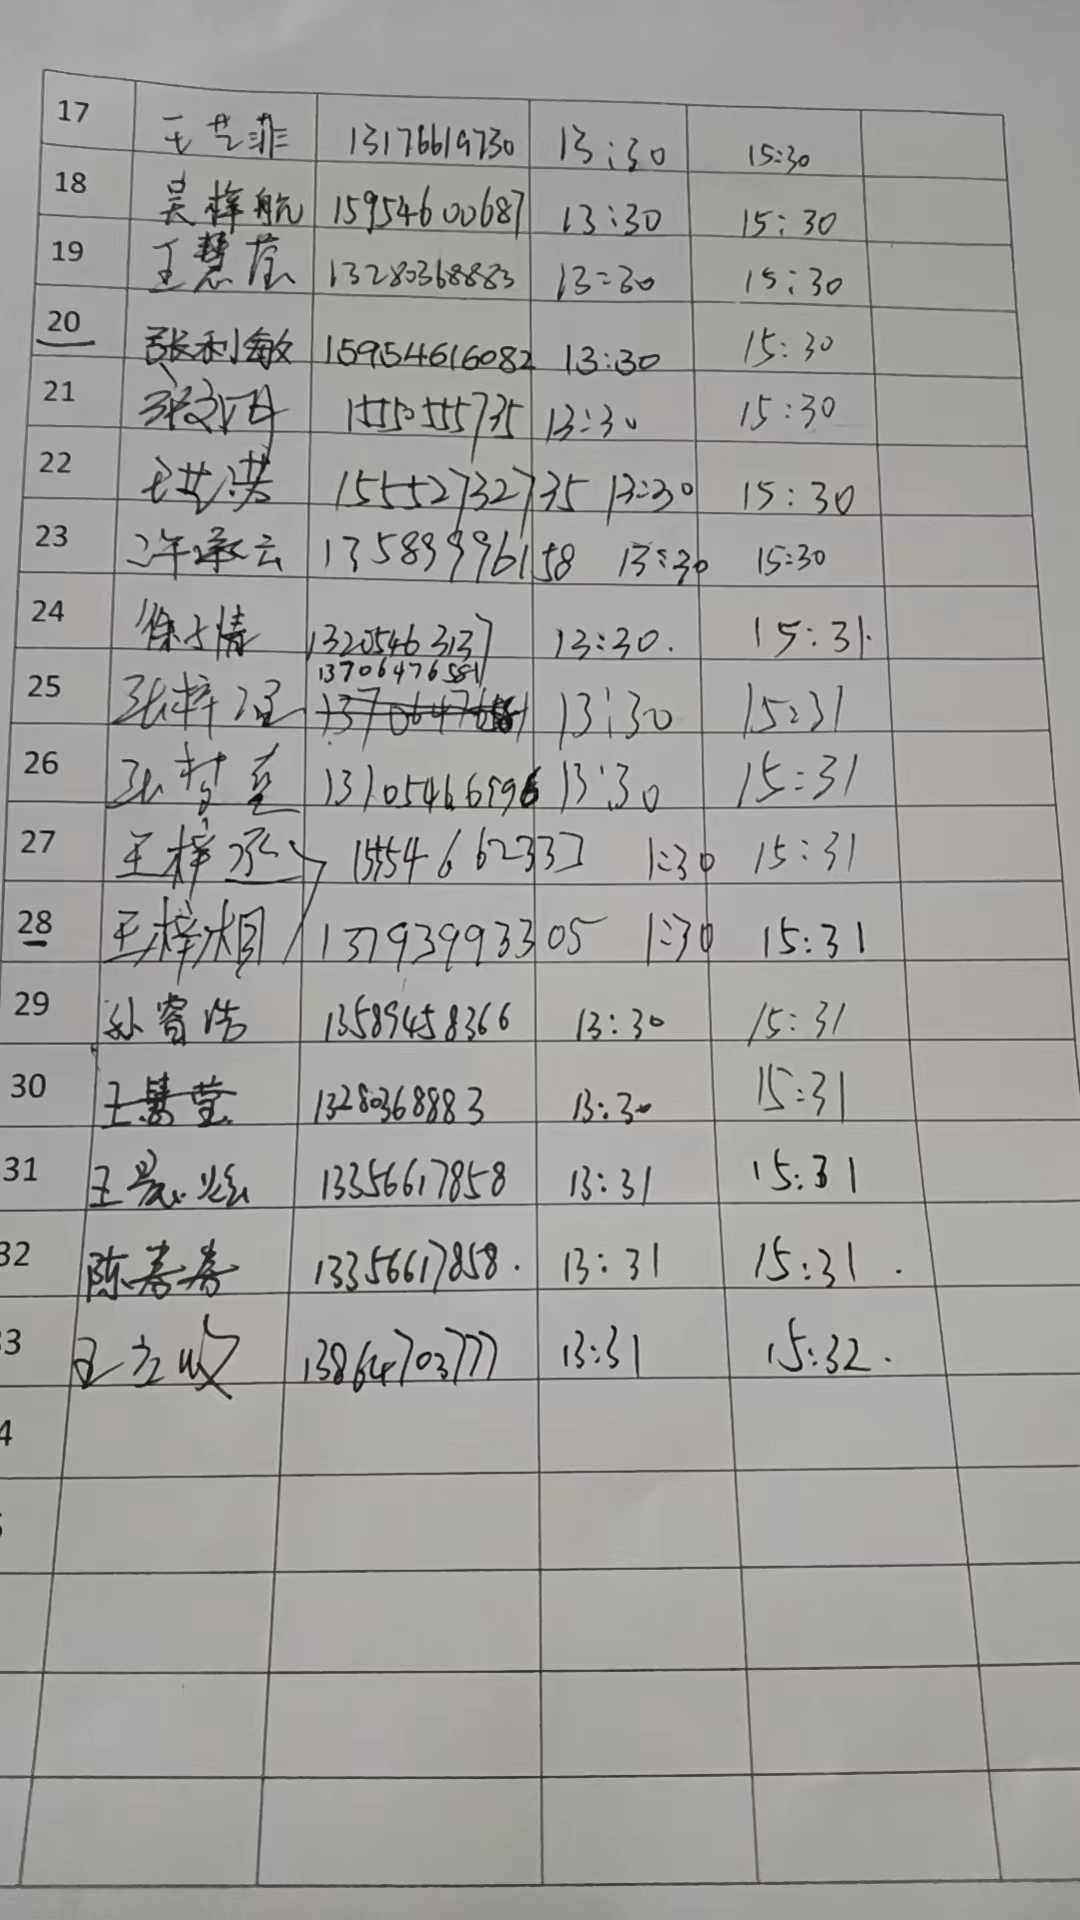 17 王艺菲 13176619730 13:30 15:30
18 吴梓航 15954600687 13:30 15:30
19 王慧莹 13280368883 13:30 15:30
20 张利敏 15954616082 13:30 15:30
21 15550555735 13:30 15:30
22 王艺洪 15552732735 13:30 15:30
23 许承云 13589996158 13:30 15:30
24 徐子情 13205463137 13:30. 15:31.
13706476581
25 张梓 13:30 15:31
26 张梦 13:30 15:31
27 王梓丞 15554662333 1:30 15:31
28 王梓相 13793993305 1:30 15:31
29 孙睿浩 13589458366 13:30 15:31
30 王慧莹 13280368883 13:30 15:31
31 王 13356617858 13:31 15:31
32 陈春春 13356617858. 13:31 15:31.
3 王立 13864703777 13:31 15:32.
4